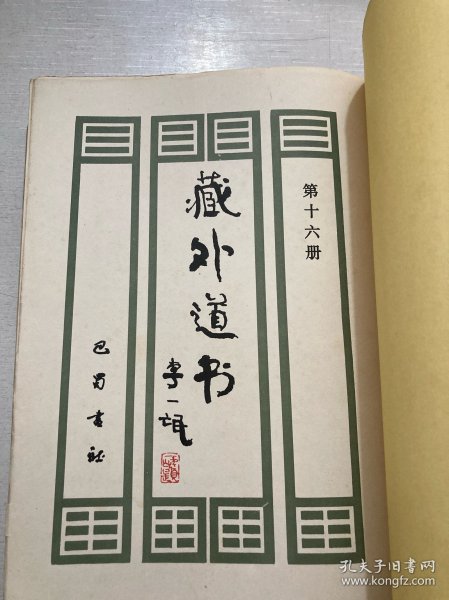 第十六册
藏外道书
李一氓
巴蜀书社
孔夫子旧书网
www.kongfz.com